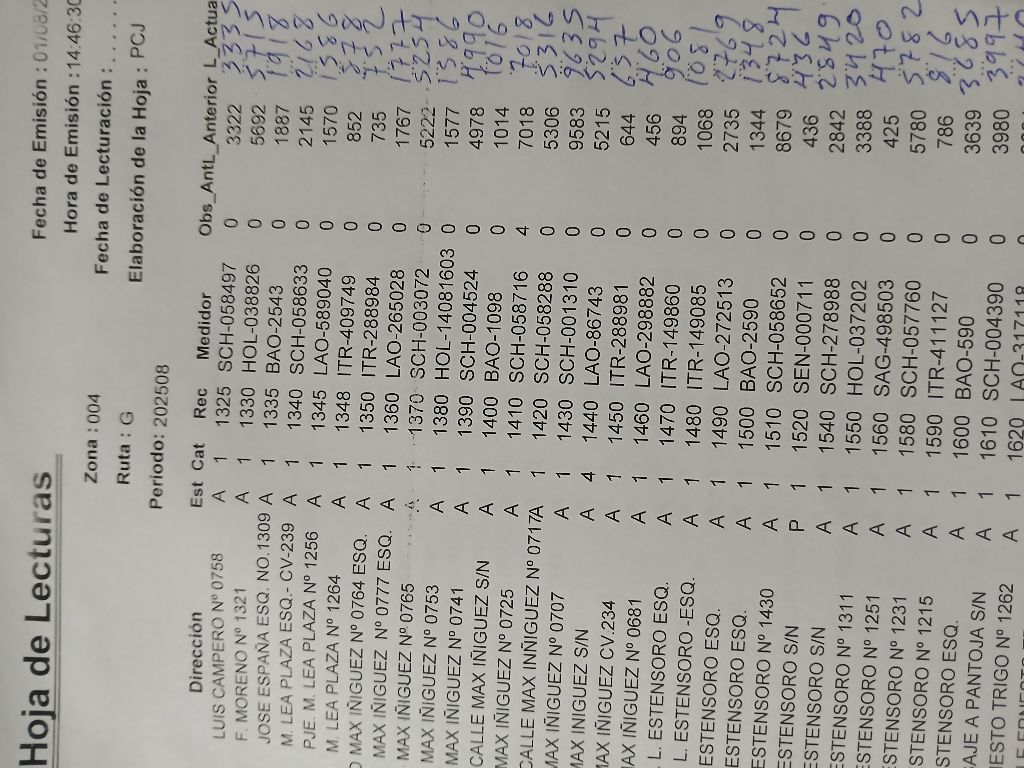 Hoja de Lecturas
Fecha de Emisión : 01/08/2
Zona : 004
Hora de Emisión : 14:46:30
Ruta : G
Fecha de Lecturación : . . . . .
Periodo: 202508
Elaboración de la Hoja : PCJ
Dirección Est Cat Rec Medidor Obs_Ant L_Anterior L_Actua
LUIS CAMPERO Nº 0758 A 1 1325 SCH-058497 0 3322 3335
F. MORENO Nº 1321 A 1 1330 HOL-038826 0 5692 5715
JOSE ESPAÑA ESQ. NO.1309 A 1 1335 BAO-2543 0 1887 1918
M. LEA PLAZA ESQ.- CV-239 A 1 1340 SCH-058633 0 2145 2168
PJE. M. LEA PLAZA Nº 1256 A 1 1345 LAO-589040 0 1570 1586
M. LEA PLAZA Nº 1264 A 1 1348 ITR-409749 0 852 878
MAX IÑIGUEZ Nº 0764 ESQ. A 1 1350 ITR-288984 0 735 752
MAX IÑIGUEZ Nº 0777 ESQ. A 1 1360 LAO-265028 0 1767 1777
MAX IÑIGUEZ Nº 0765 A 1 1370 SCH-003072 0 5222 5254
MAX IÑIGUEZ Nº 0753 A 1 1380 HOL-14081603 0 1577 1586
MAX IÑIGUEZ Nº 0741 A 1 1390 SCH-004524 0 4978 4990
CALLE MAX IÑIGUEZ S/N A 1 1400 BAO-1098 0 1014 1016
MAX IÑIGUEZ Nº 0725 A 1 1410 SCH-058716 4 7018 7018
CALLE MAX INÑIGUEZ Nº 0717 A 1 1420 SCH-058288 0 5306 5316
MAX IÑIGUEZ Nº 0707 A 1 1430 SCH-001310 0 9583 9635
MAX IÑIGUEZ S/N A 4 1440 LAO-86743 0 5215 5294
MAX IÑIGUEZ CV.234 A 1 1450 ITR-288981 0 644 657
MAX IÑIGUEZ Nº 0681 A 1 1460 LAO-298882 0 456 460
L. ESTENSORO ESQ. A 1 1470 ITR-149860 0 894 906
L. ESTENSORO -ESQ. A 1 1480 ITR-149085 0 1068 1081
ESTENSORO ESQ. A 1 1490 LAO-272513 0 2735 2769
ESTENSORO ESQ. A 1 1500 BAO-2590 0 1344 1348
ESTENSORO Nº 1430 A 1 1510 SCH-058652 0 8679 8724
ESTENSORO S/N P 1 1520 SEN-000711 0 436 436
ESTENSORO S/N A 1 1540 SCH-278988 0 2842 2849
ESTENSORO Nº 1311 A 1 1550 HOL-037202 0 3388 3420
ESTENSORO Nº 1251 A 1 1560 SAG-498503 0 425 470
ESTENSORO Nº 1231 A 1 1580 SCH-057760 0 5780 5782
ESTENSORO Nº 1215 A 1 1590 ITR-411127 0 786 816
STENSORO ESQ. A 1 1600 BAO-590 0 3639 3685
SAJE A PANTOJA S/N A 1 1610 SCH-004390 0 3980 3997
NESTO TRIGO Nº 1262 A 1 1620 LAO-317118 0